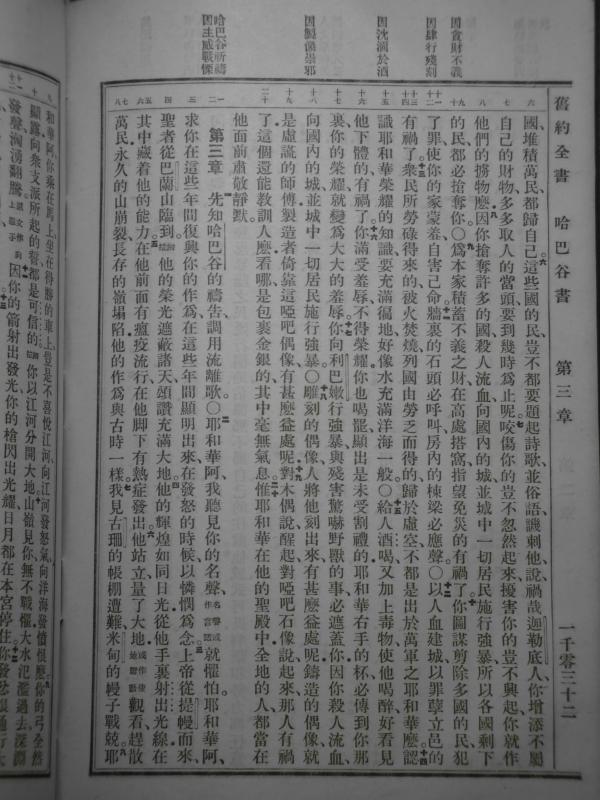 舊約全書 哈巴谷書 第三章 一千零三十二
因貪財不義
因肆行殘刻
因沈湎於酒
因製像崇邪
哈巴谷祈禱
因主威戰慄
國堆積萬民都歸自己這些國的民豈不都要題起詩歌並俗語譏刺他說禍哉迦勒底人你增添不屬
自己的財物多多取人的當頭要到幾時爲止呢咬傷你的豈不忽然起來擾害你的豈不興起你就作
他們的擄物麼因你搶奪許多的國殺人流血向國內的城並城中一切居民施行強暴所以各國剩下
的民都必搶奪你〇爲本家積蓄不義之財在高處搭窩指望免災的有禍了你圖謀剪除多國的民犯
了罪使你的家蒙羞自害己命牆裏的石頭必呼叫房內的棟梁必應聲〇以人血建城以罪孽立邑的
有禍了衆民所勞碌得來的被火焚燒列國由勞乏而得的歸於虛空不都是出於萬軍之耶和華麼認
識耶和華榮耀的知識要充滿徧地好像水充滿洋海一般〇給人酒喝又加上毒物使他喝醉好看見
他下體的有禍了你滿受羞辱不得榮耀你也喝罷顯出是未受割禮的耶和華右手的杯必傳到你那
裏你的榮耀就變爲大大的羞辱你向利巴嫩行強暴與殘害驚嚇野獸的事必遮蓋你因你殺人流血
向國內的城並城中一切居民施行強暴〇雕刻的偶像人將他刻出來有甚麼益處呢鑄造的偶像就
是虛謊的師傅製造者倚靠這啞吧偶像有甚麼益處呢對木偶說醒起對啞吧石像說起來那人有禍
了這個還能教訓人麼看哪是包裹金銀的其中毫無氣息惟耶和華在他的聖殿中全地的人都當在
他面前肅敬靜默
第三章 先知哈巴谷的禱告調用流離歌〇耶和華阿我聽見你的名聲名聲或作言語就懼怕耶和華阿
求你在這些年間復興你的作爲在這些年間顯明出來在發怒的時候以憐憫爲念上帝從提幔而來
聖者從巴蘭山臨到他的榮光遮蔽諸天頌讚充滿大地他的輝煌如同日光從他手裏射出光線在
其中藏着他的能力在他前面有瘟疫流行在他脚下有熱症發出他站立量了大地觀看趕散
萬民永久的山崩裂長存的嶺塌陷他的作爲與古時一樣我見古珊的帳棚遭難米甸的幔子戰兢耶
和華阿你乘在馬上坐在得勝的車上豈是不喜悅江河向江河發怒氣向洋海發憤恨麼你的弓全然
顯露向衆支派所起的誓都是可信的你以江河分開大地山嶺見你無不戰懼大水氾濫過去深淵
發聲洶湧翻騰因你的箭射出發光你的槍閃出光耀日月都在本宮停住